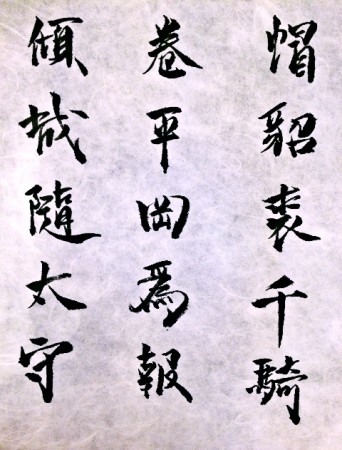 帽貂裘千騎
卷平岡爲報
傾城隨太守